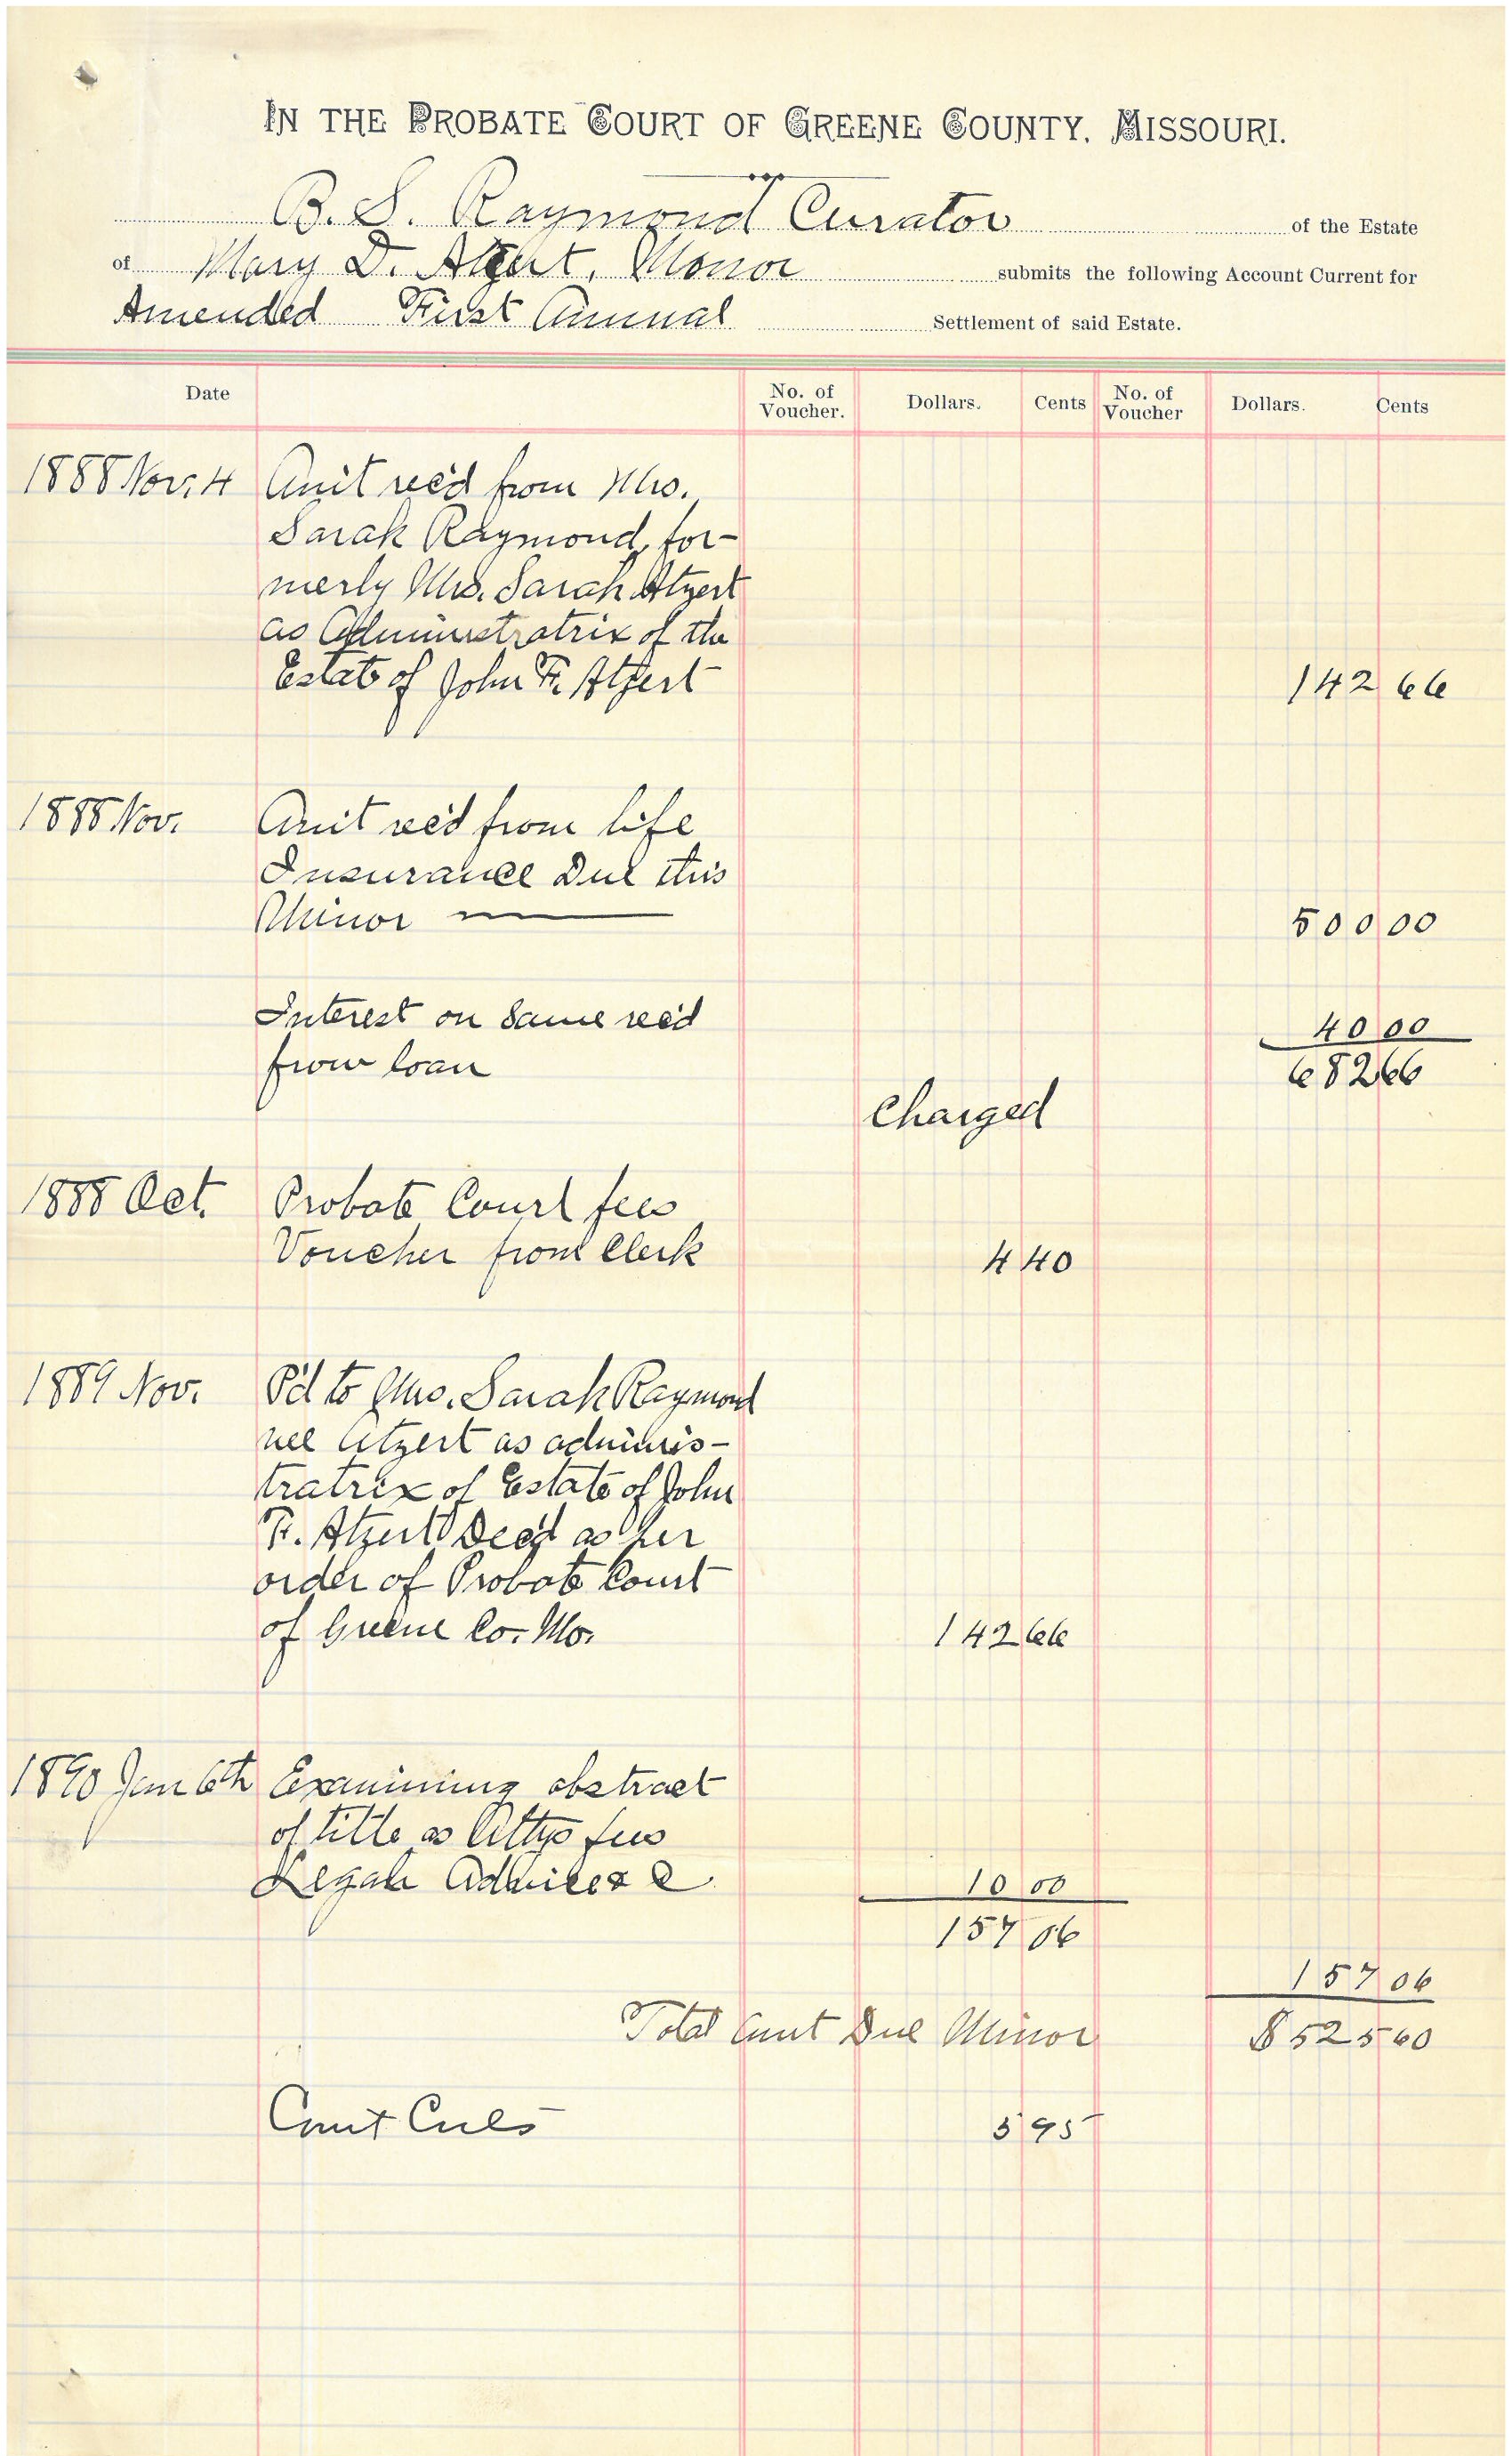 IN THE PROBATE COURT OF GREENE COUNTY, MISSOURI.
B. S. Raymond Curator of the Estate
of Mary D. Atzert, Monor submits the following Account Current for
Amended First Annual Settlement of said Estate.
Date No. of Voucher. Dollars. Cents No. of Voucher Dollars. Cents
1888 Nov. 4 Am't rec'd from Mrs.
Sarah Raymond, for-
merly Mrs. Sarah Atzert
as Administratrix of the
Estate of John F. Atzert 142 66
1888 Nov. Am't rec'd from life
Insurance Due this
Minor 500 00
Interest on Same rec'd 40 00
from loan 682 66
Charged
1888 Oct. Probate Court fees
Voucher from Clerk 4 40
1889 Nov. P'd to Mrs. Sarah Raymond
nee Atzert as adminis-
tratrix of Estate of John
F. Atzert Dec'd as per
order of Probate Court
of Greene Co. Mo. 142 66
1890 Jan 6th Examining abstract
of title as Attys fees
Legal Advice & C 10 00
157 06
157 06
Total Amt Due Minor $525 60
Court 3 95